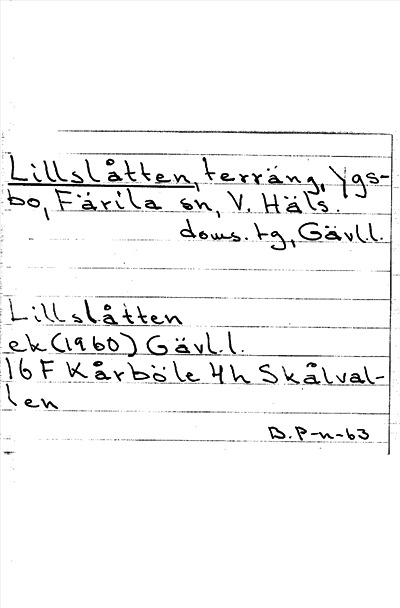 Lillslåtten, terräng, Ygs-
bo, Färila sn, V. Häls.
doms. tg, Gävl.l.
Lillslåtten
ek (1960) Gävl.l.
16 F Kårböle 4h Skålval-
len
B.P-n-63